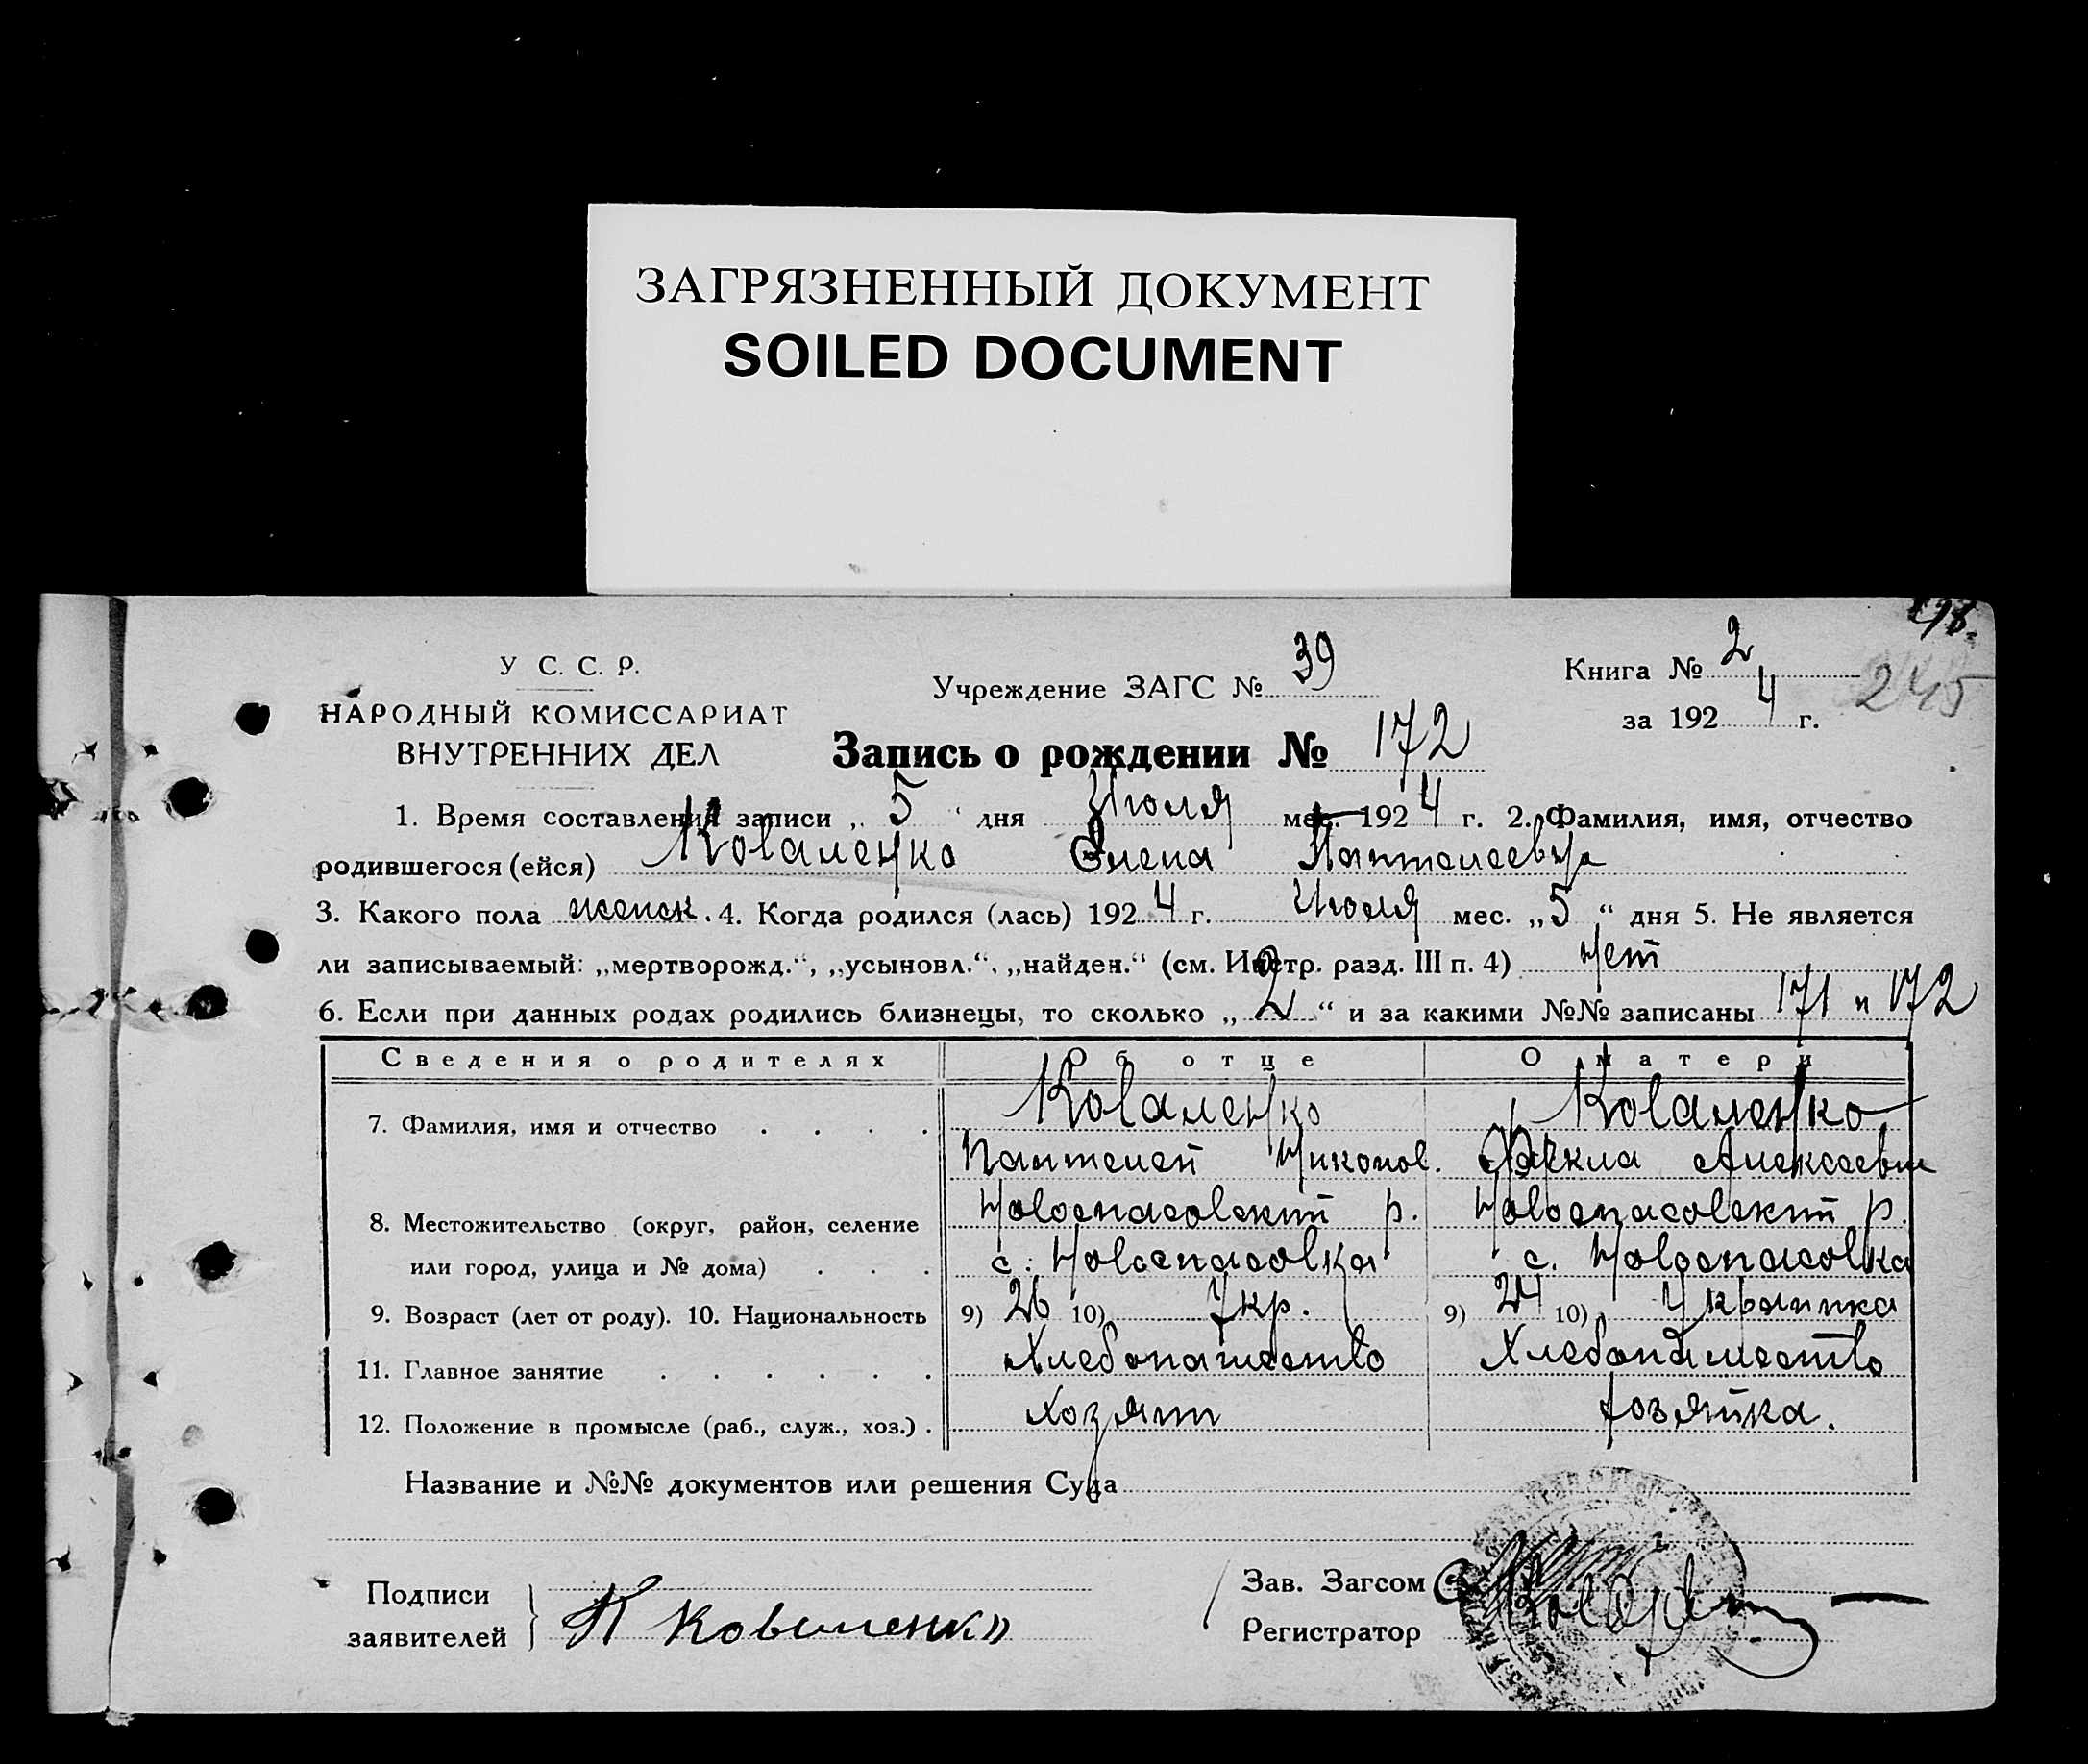 ЗАГРЯЗНЕННЫЙ ДОКУМЕНТ
SOILED DOCUMENT
У С. С. Р.
НАРОДНЫЙ КОМИССАРИАТ
ВНУТРЕННИХ ДЕЛ
Учреждение ЗАГС № 39
Книга № 2
за 192 4 г.
245
Запись о рождении № 172
1. Время составления записи „ 5 “ дня Июля мес. 192 4 г. 2. Фамилия, имя, отчество
родившегося (ейся) Коваленко Елена Пантелеевна
3. Какого пола женск. 4. Когда родился (лась) 192 4 г. Июля мес. „ 5 “ дня 5. Не является
ли записываемый: „мертворожд.“, „усыновл.“, „найден.“ (см. Инстр. разд. III п. 4) нет
6. Если при данных родах родились близнецы, то сколько „ 2 “ и за какими №№ записаны 171 и 172
Сведения о родителях Об отце О матери
7. Фамилия, имя и отчество . . . . Коваленко Коваленко
Пантелей Никонов. Фекла Алексеевна
8. Местожительство (округ, район, селение Новоспасовский р. Новоспасовский р.
или город, улица и № дома) . . . с. Новоспасовка с. Новоспасовка
9. Возраст (лет от роду). 10. Национальность 9) 26 10) Укр. 9) 24 10) Украинка
11. Главное занятие . . . . . . Хлебопашество Хлебопашество
12. Положение в промысле (раб., служ., хоз.) . Хозяин Хозяйка.
Название и №№ документов или решения Суда
Подписи
заявителей } П Коваленко
Зав. Загсом
Регистратор